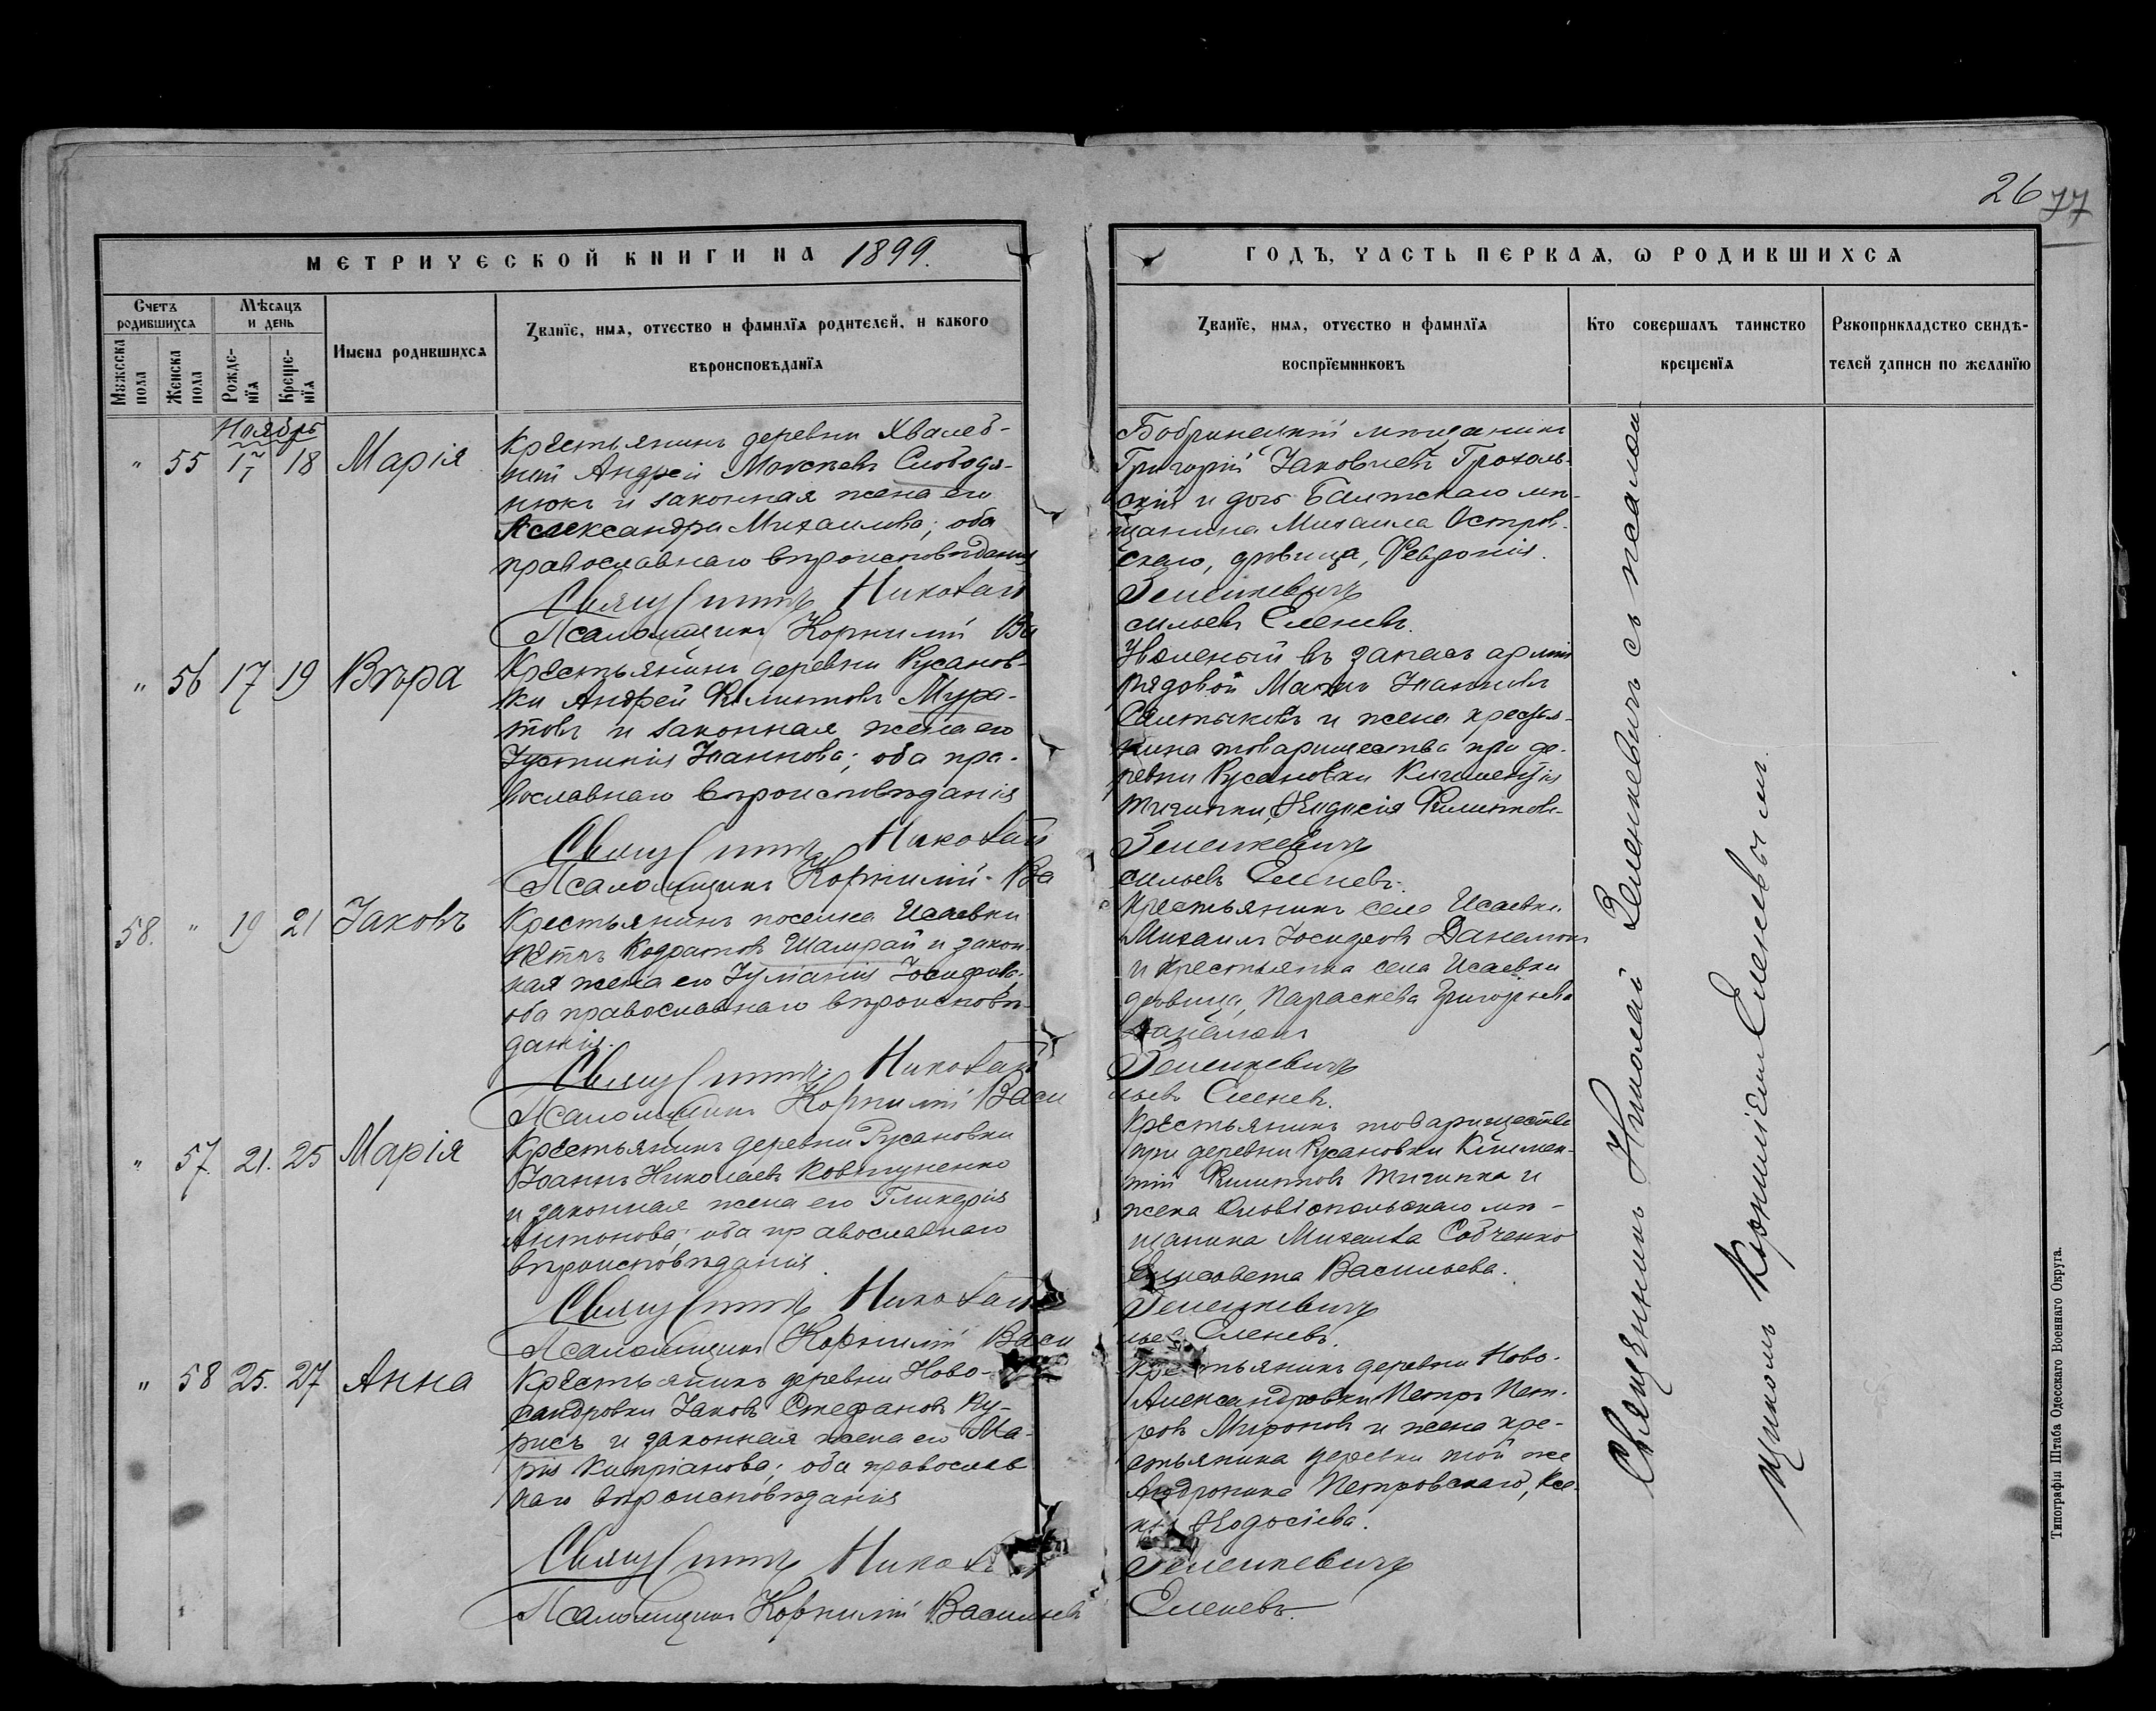 26 77
МЕТРИЧЕСКОЙ КНИГИ НА 1899.
ГОДЪ, ЧАСТЬ ПЕРВАЯ, Ѡ РОДИВШИХСЯ
Счетъ родившихся
Мѣсяцъ и день
Мужеска пола
Женска пола
Рожде-нїя
Креще-нїя
Имена родившихся
Званїе, имя, отчество и фамилїя родителей, и какого
вѣроисповѣданїя
Званїе, имя, отчество и фамилїя
воспрїемниковъ
Кто совершалъ таинство
крещенїя
Рукоприкладство свидѣ-
телей записи по желанїю
Ноябрь
" 55 17 18 Марія
Крестьянинъ деревни Хвалеб-
ний Андрей Слободя-
нюкъ и законная жена его
Александра Михаилова; оба
православнаго вѣроисповѣданія
Священникъ Николай
Псаломщикъ Корнилій Ва
Бобринецкій мѣщанинъ
Григорій Іаковлевъ Грохоль-
скій и дочь Балтскаго мѣ-
щанина Михаила Остров-
скаго, дѣвица, Февронія.
Зеленкевичъ
сильевъ Еленевъ.
" 56 17 19 Вѣра
Крестьянинъ деревни Русанов-
ки Андрей Филиповъ Мура-
товъ и законная жена его
Іустинія Іоаннова; оба пра-
вославнаго вѣроисповѣданія
Священникъ Николай
Псаломщикъ Корнилій Ва
Уволеный въ запасъ арміи
рядовой Іоанновъ
Салтыковъ и жена крестья-
нина товарищества при де-
ревни Русановки Климентія
Филипова
Зеленкевичъ
сильевъ Еленевъ.
58. " 19 21 Іаковъ
Крестьянинъ поселка Исаевки
Петръ Шамрай и закон-
ная жена его Іуліанія Іосифова;
оба православнаго вѣроисповѣ-
данія.
Священникъ Николай
Псаломщикъ Корнилій Васи
Крестьянинъ села Исаевки
Михаилъ Іосифовъ Данелюкъ
и крестьянка села Исаевки
дѣвица, Параскева Григорьева
Данелюкъ
Зеленкевичъ
льевъ Еленевъ.
" 57. 21. 25 Марія
Крестьянинъ деревни Русановки
Іоаннъ Николаевъ Ковтуненко
и законная жена его Гликерія
Антонова; оба православнаго
вѣроисповѣданія.
Священникъ Николай
Псаломщикъ Корнилій Васи
Крестьянинъ товарищества
при деревни Русановки Климен-
тій Филиповъ и
жена Ольвіопольскаго мѣ-
щанина Михаила Собченко
Елисавета Васильева.
Зеленкевичъ
льевъ Еленевъ.
" 58 25. 27 Анна
Крестьянинъ деревни Ново-
сандровки Іаковъ Стефановъ Ку-
рисъ и законная жена его Ма-
рія Кипріанова; оба православ
наго вѣроисповѣданія
Священникъ Николай
Псаломщикъ Корнилій Васильевъ
Крестьянинъ деревни Ново-
Александровки Петръ Пет-
ровъ Мироновъ и жена кре-
стьянина деревни той же
Андроника Петровскаго, Ксе-
нія Ѳеодосіева.
Зеленкевичъ
Еленевъ.
Священникъ Николай Зеленкевичъ съ псалом-
щикомъ Корниліемъ Еленевымъ.
Типографія Штаба Одесскаго Военнаго Округа.